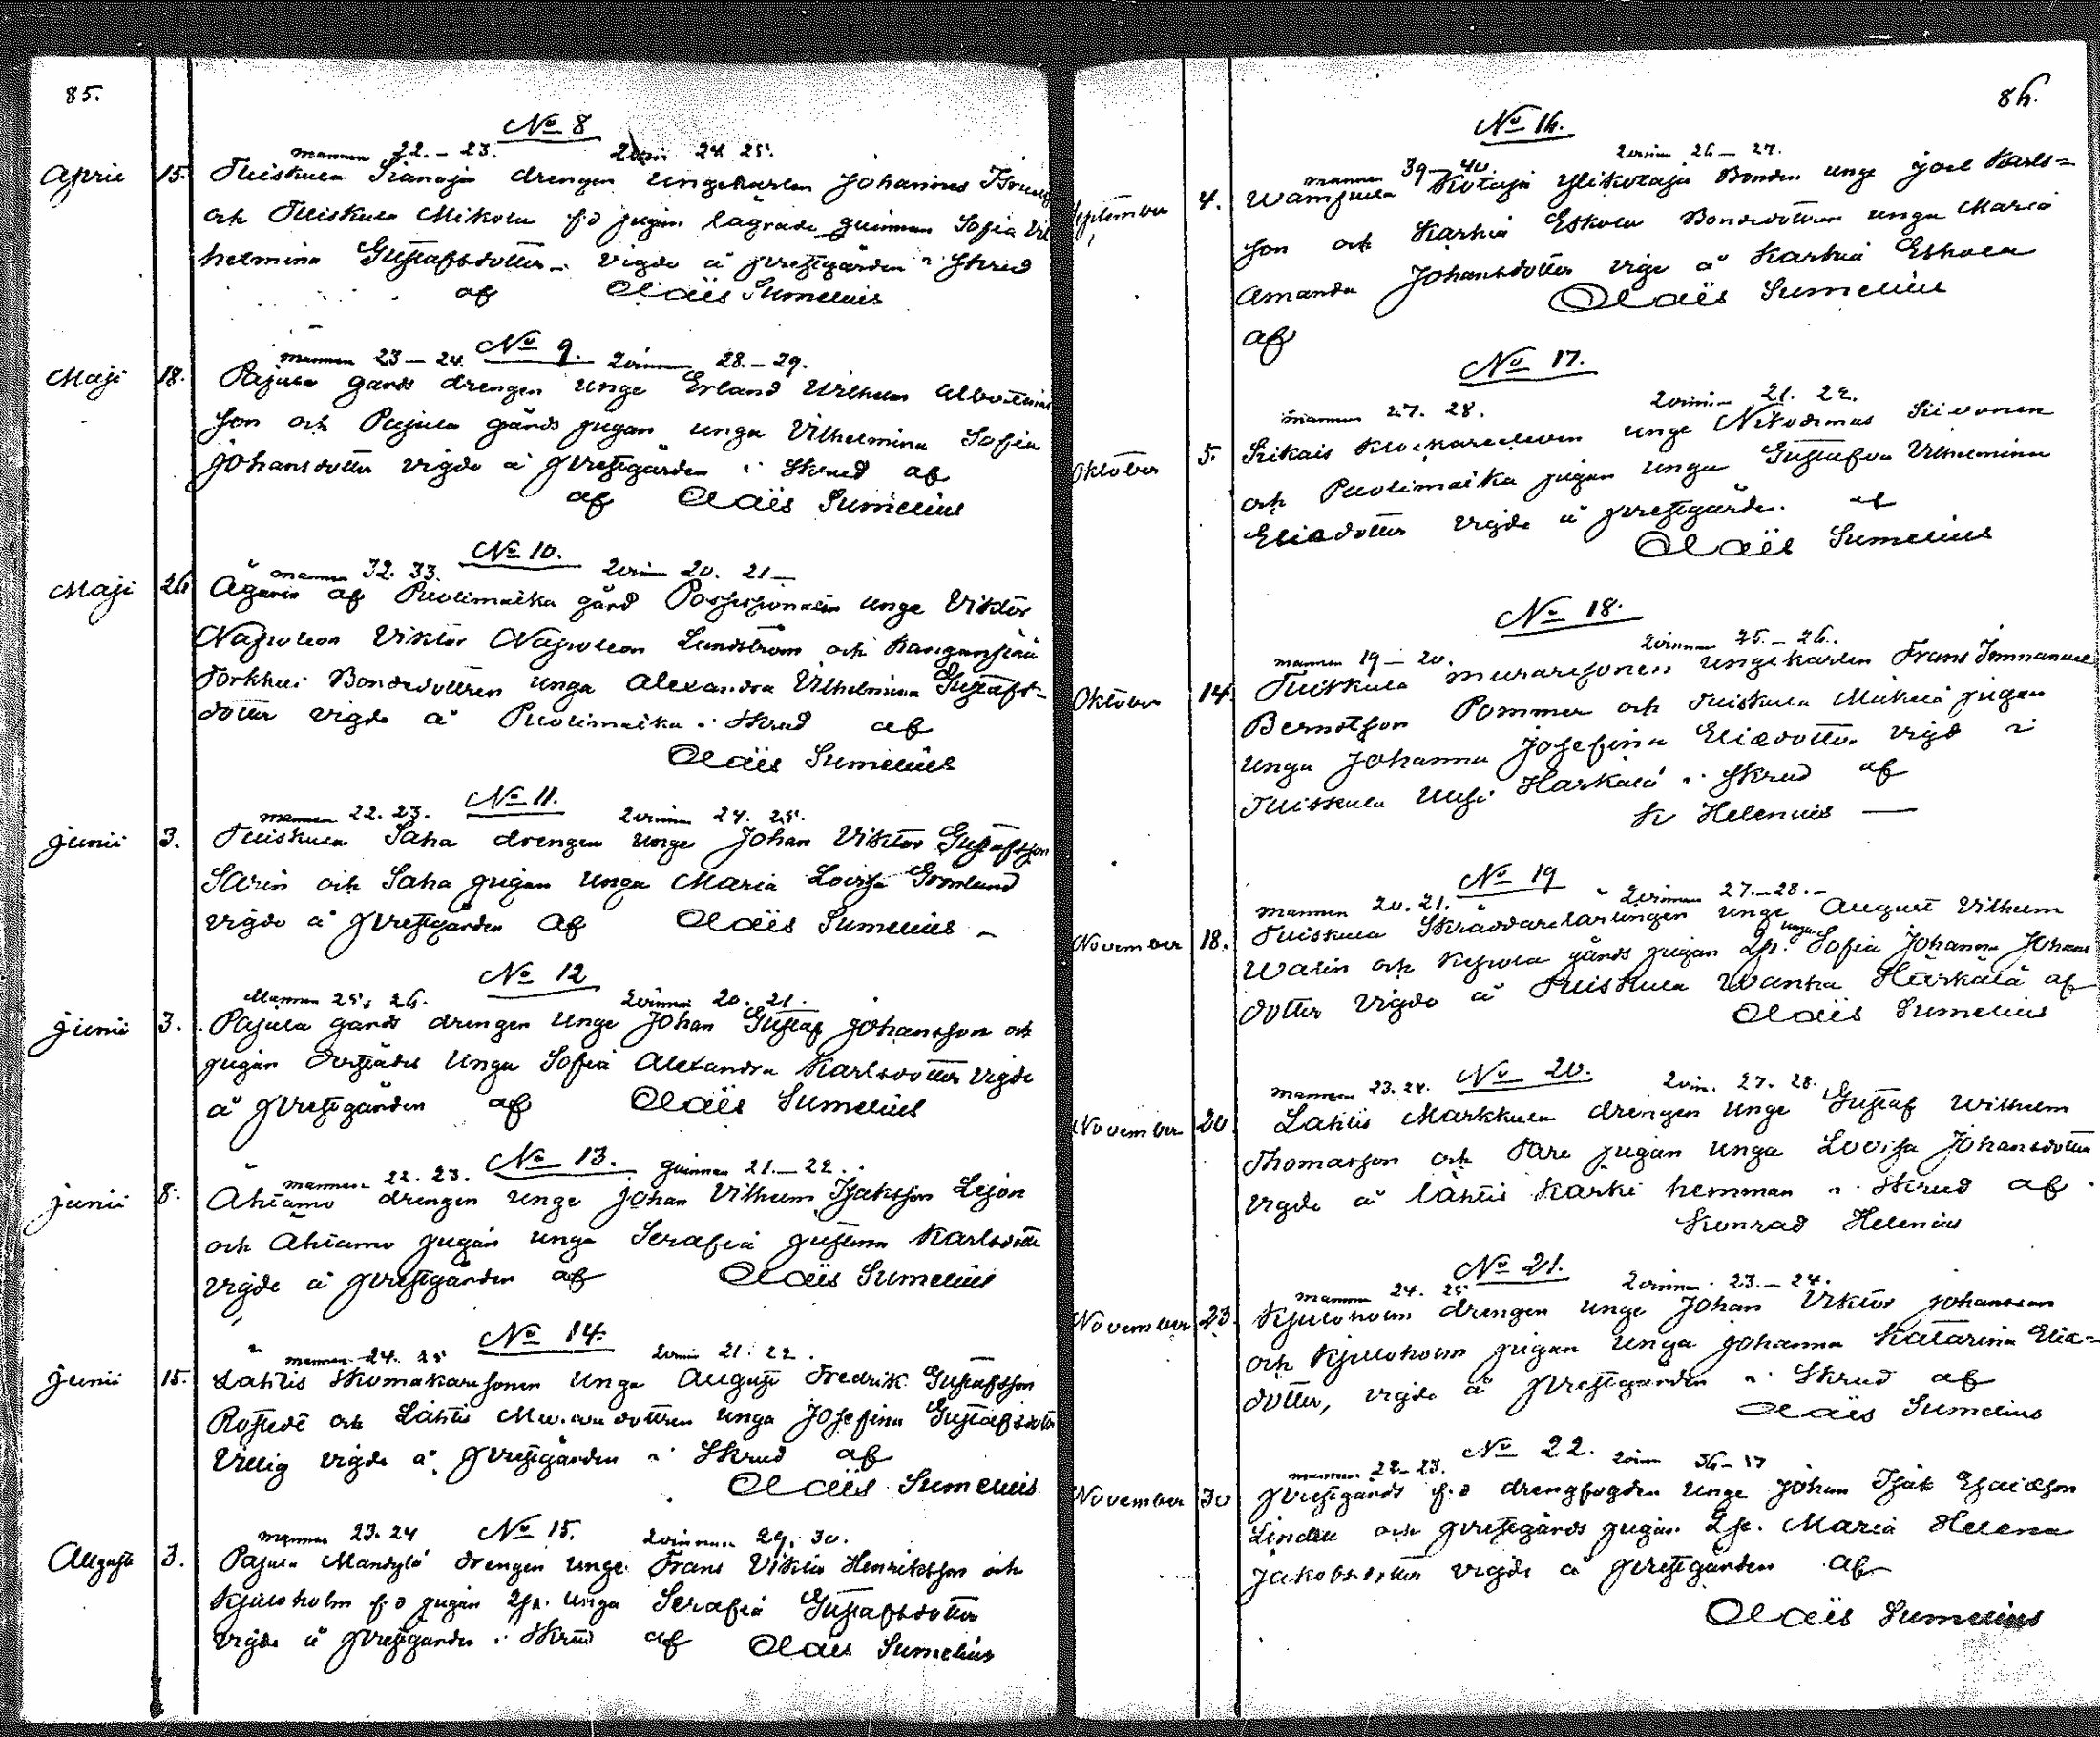 85.
No 8
mannen 22. - 23. 24 25.
April 15. Tuiskula drengen ungekarlen Johannes
och Tuiskula Mikola f.d pigan lägrade quinnan Sofia Vil
helmina Gustafsdotter vigde å prestgården i skrud
af Claës Sumelius
No 9.
mannen 23 - 24. qvinnan 28. - 29.
Maji 18. Pajula gårds drengen unge Erland Vilhelm
son och Pajula gårds pigan unga Vilhelmina Sofia
Johansdotter vigde å prestgården i skrud af
af Claës Sumelius
No 10.
mannen 32. 33. qvinn 20. 21 -
Maji 26 Ägaren af Puolimatka gård Possessionaten unge Viktor
Napoleon Viktor Napoleon Lundström och
Torkkeli Bondedottren unga Alexandra Vilhelmina Gustafs-
dotter vigde å Puolimatka i skrud af
Claës Sumelius
No 11.
mannen 22. 23. qvinnan 24. 25.
Junii 3. Tuiskula Saha drengen unge Johan Viktor Gustafsson
och Saha pigan unga Maria Lovisa
vigde å prestgården af Claës Sumelius -
No 12
Mannen 25, 26. qvinnan 20. 21.
Junii 3. Pajula gårds drengen unge Johan Gustaf Johansson och
pigan derstädes unga Sofia Alexandra Karlsdotter vigde
å prestgården af Claës Sumelius
No 13.
mannen 22. 23. quinnan 21. - 22.
Junii 8. Ahtamo drengen unge Johan Vilhelm Isaksson Lejon
och Ahtamo pigan unga Serafia Justina Karlsdott
vigde å prestgården af Claës Sumelius
No 14.
mannen 24. 25 qvinn 21. 22.
Junii 15. Lahtis skomakaresonen unge August Fredrik Gustafsson
och Lahtis dottren unga Josefina Gustafsdotter
Villig vigde å prestgården i skrud af
Claës Sumelius
mannen 23. 24 No 15. qvinnan 29. 30.
Augusti 3. Pajula Mandylä drengen unge Frans Viktor Henriksson och
Kjuloholm f.d pigan unga Serafia Gustafsdotter
vigde å prestgården i skrud af Claës Sumelius
86.
No 16.
mannen 39 - 40. qvinnan 26 - 27.
September 4. Wampula Kotaja Ylikotaja Bonden unge Joel Karls=
son och Karhia Eskola Bondedottren unga Maria
Amanda Johansdotter vige å Karhia Eskola
Claës Sumelius
af
No 17.
mannen 27. 28. qvinnan 21. 22.
Oktober 5. Kikais Klockareeleven unge Nikodemus Siivonen
och Puolimatka pigan unga Gustafva Vilhelmina
Eliedotter vigde å prestgården. af
Claës Sumelius
No 18.
mannen 19 - 20. qvinnan 25. - 26.
Oktober 14. Tuiskula muraresonen ungekarlen Frans Immanuel
Berndtson Pommer och Tuiskula Mikola pigan
unga Johanna Josefina Eliedotter vigd i
Tuiskula Uusi Härkälä i skrud af
K Helenius -
No 19
mannen 20. 21. qvinnan 27. - 28. -
November 18. Tuiskula Skräddarelärlingen unge August Vilhelm
Walin och Kepola gårds pigan unga Sofia Johanna Johans
dotter vigde å Tuiskula Wanha Härkälä af
Claës Sumelius
No 20.
mannen 23. 24. qvin. 27. 28.
November 20. Lahtis Markkula drengen unge Gustaf Wilhelm
Thomasson och Pare pigan unga Lovisa Johansdotter
vigde å Lahtis Karki hemman i skrud af
Konrad Helenius
No 21.
mannen 24. 25 qvinnan 23. - 24.
November 23. Kjuloholm drengen unge Johan Viktor Johansson
och Kjuloholm pigan unga Johanna Katarina Elie-
dotter, vigde å prestgården i skrud af
Claës Sumelius
No 22.
mannen 22-23. qvinn 36-37
November 30 Prestgårds f.d drengfogden unge Johan Isak Esaiasson
Lindell och prestgårds pigan Maria Helena
Jakobsdotter vigde å prestgården af
Claës Sumelius